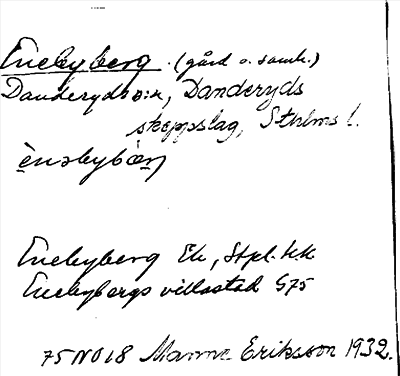 Enebyberg (gård o. samh.)
Danderyds s:n, Danderyds
skeppslag, Sthlms l.
Enebyberg Ek, Stpl. kk
Enebybergs villastad G75
75 NO 18 Manne Eriksson 1932.